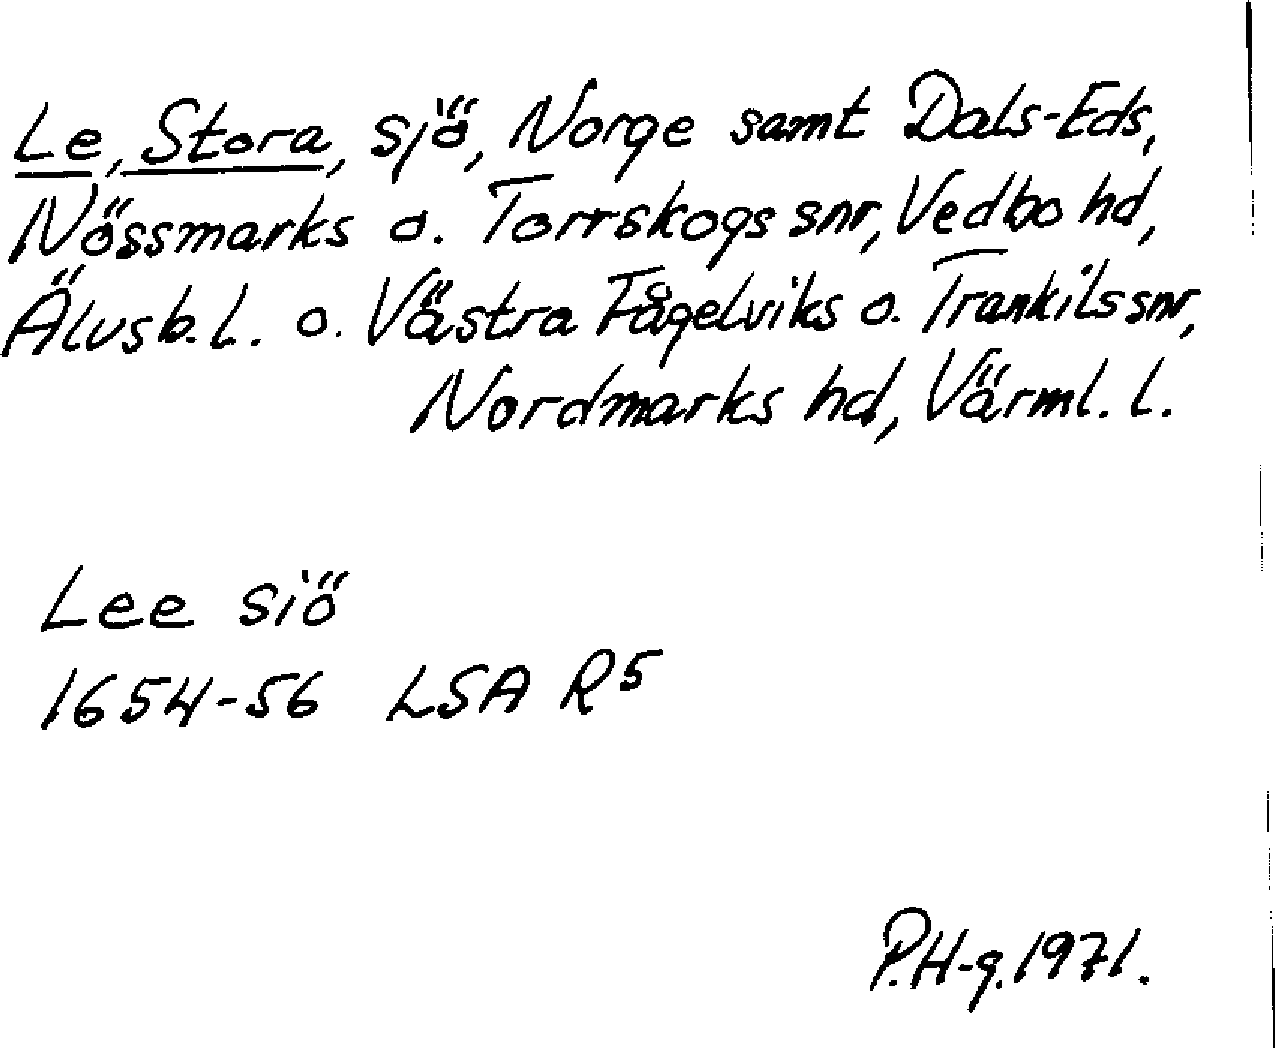 Le, Stora, sjö, Norge samt Dals-Eds,
Nössmarks o. Torrskogs snr, Vedbo hd,
Älvsb. l. o. Västra Fågelviks o. Trankils snr,
Nordmarks hd, Värml. l.
Lee siö
1654-56 LSA R5
P.H-g. 1971.